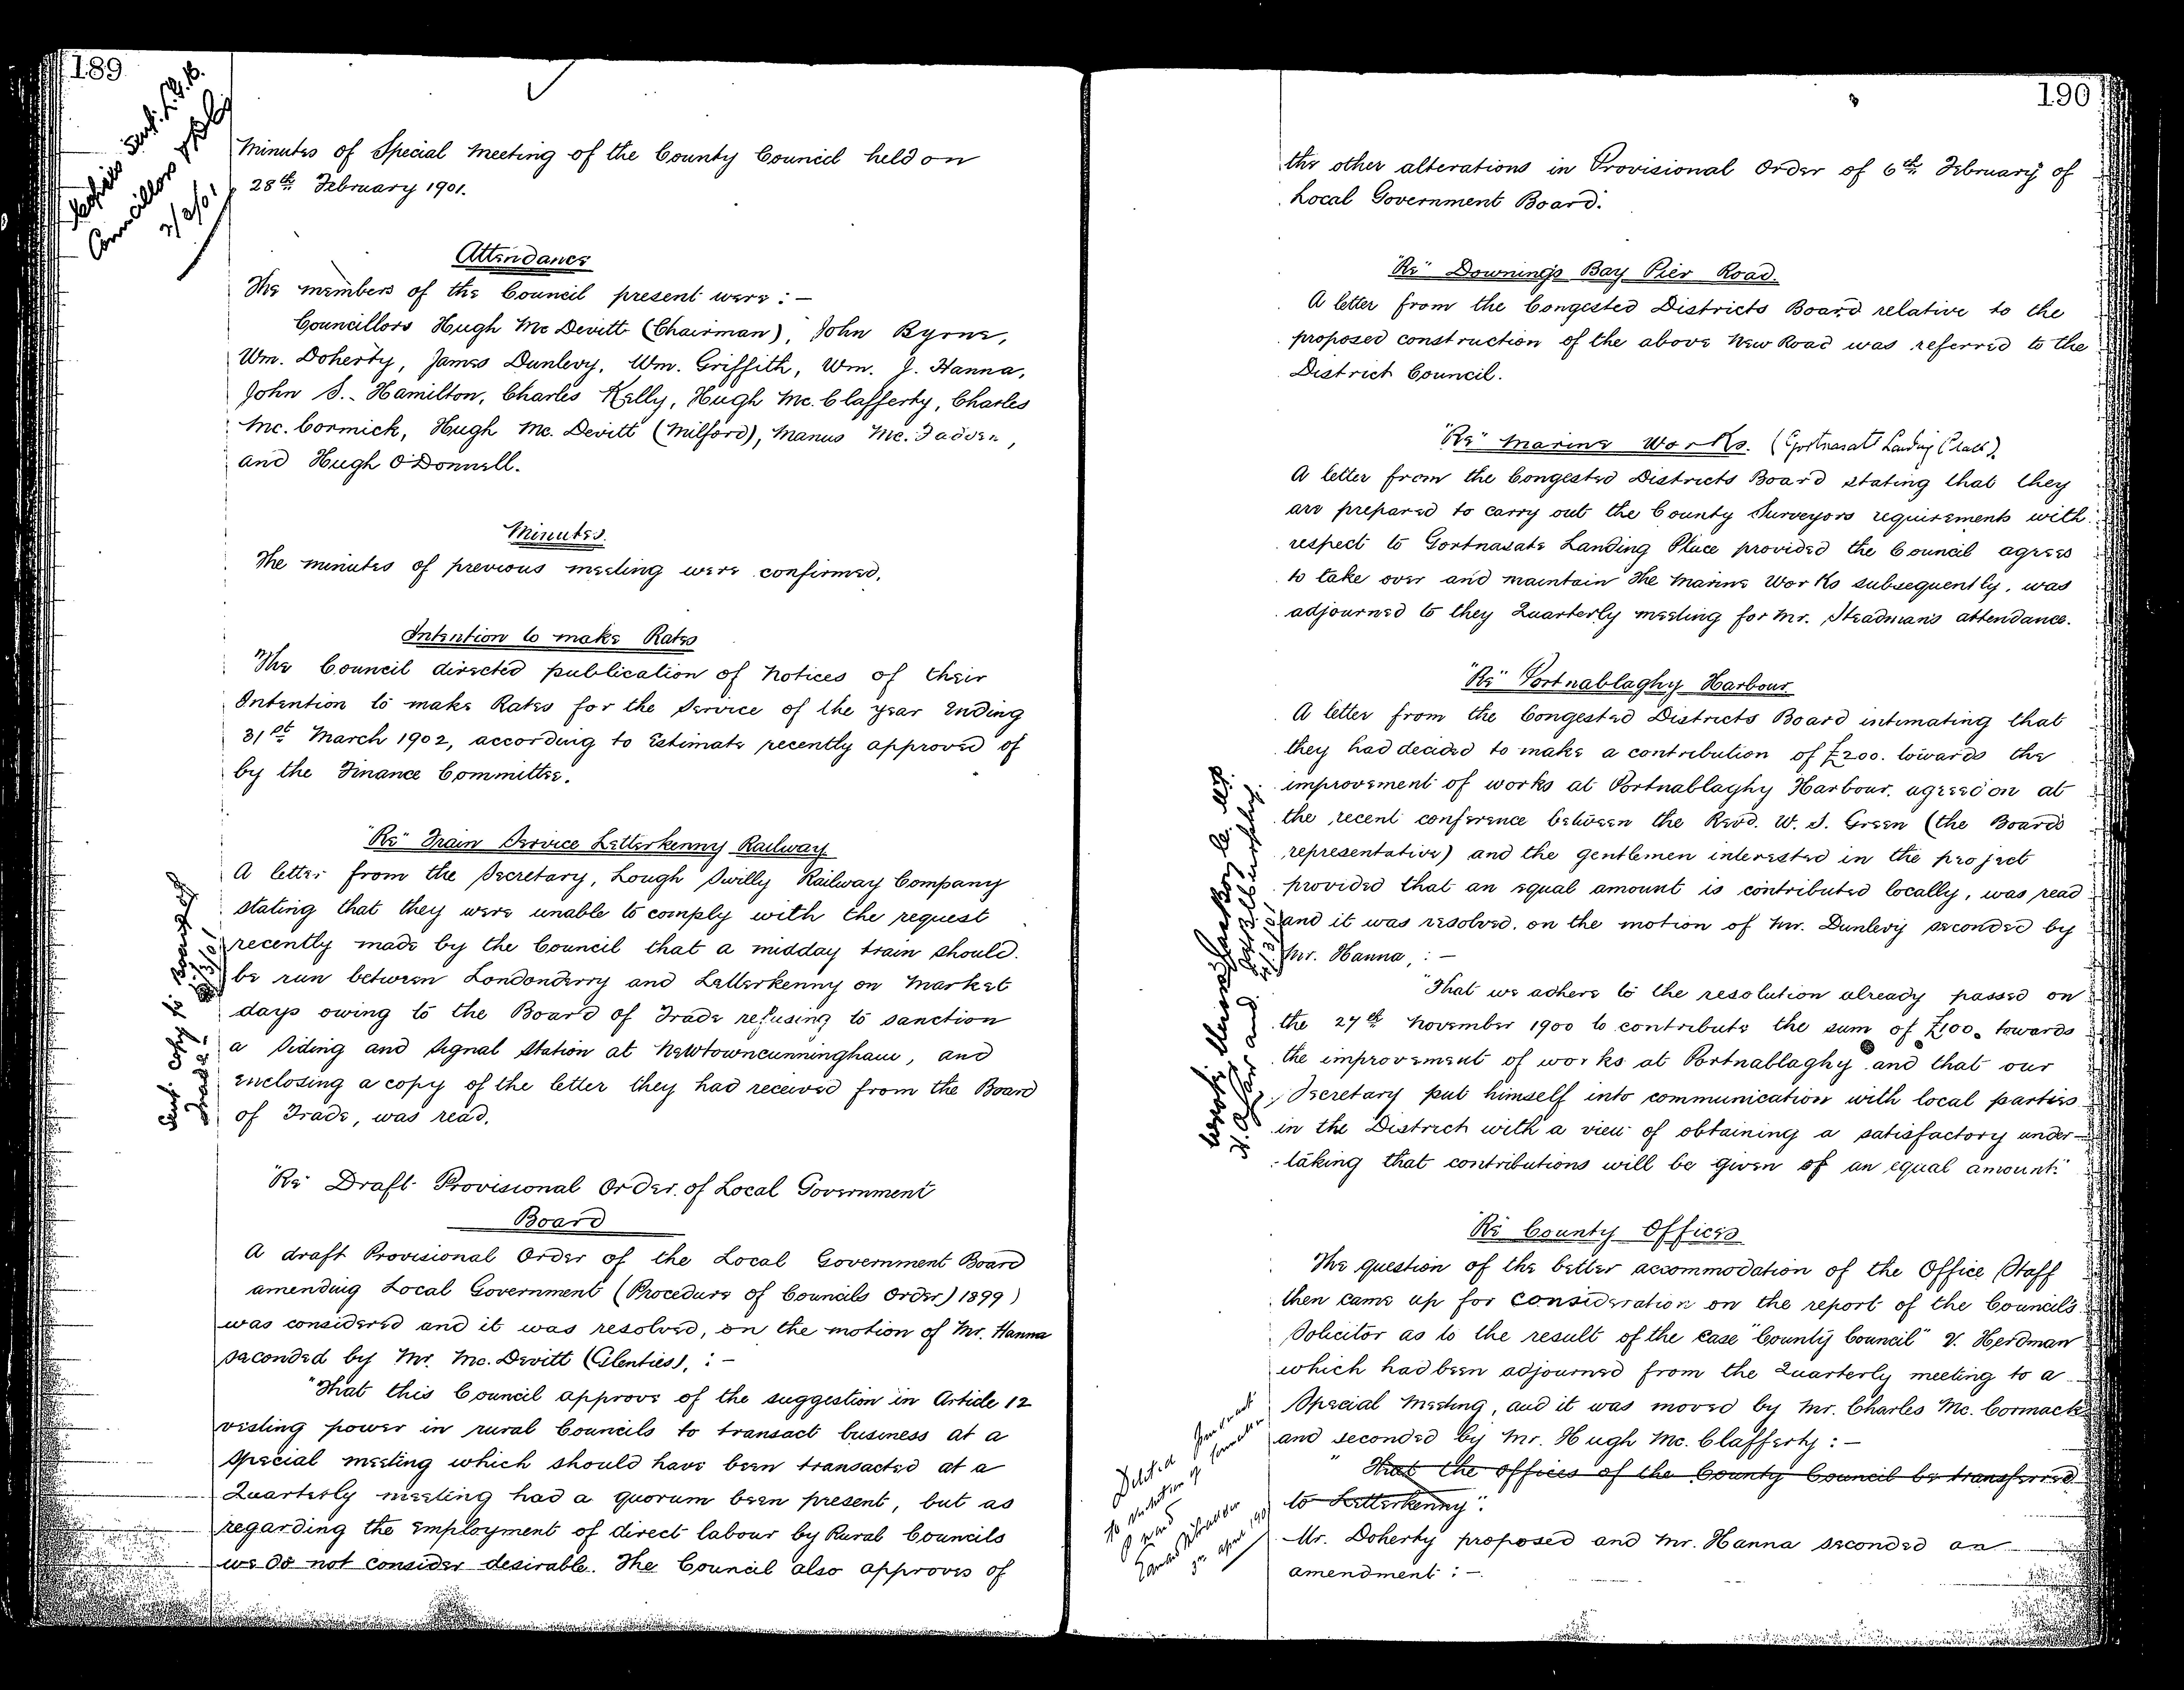 189
Copies sent L.G.B.
Councillors
2/3/01
Minutes of Special Meeting of the County Council held on
28th February 1901.
Attendance
The members of the Council present were : —
Councillors Hugh Mc Devitt (Chairman), John Byrne,
Wm. Doherty, James Dunlevy, Wm. Griffith, Wm. J. Hanna,
John S. Hamilton, Charles Kelly, Hugh Mc. Clafferty, Charles
Mc. Cormick, Hugh Mc. Devitt (Milford), Manus Mc. Fadden,
and Hugh O'Donnell.
Minutes.
The minutes of previous meeting were confirmed.
Intention to make Rates
The Council directed publication of Notices of their
Intention to make Rates for the Service of the year Ending
31st March 1902, according to Estimate recently approved of
by the Finance Committee.
"Re" Train Service Letterkenny Railway
A letter from the Secretary, Lough Swilly Railway Company
stating that they were unable to comply with the request
recently made by the Council that a midday train should
be run between Londonderry and Letterkenny on Market
days owing to the Board of Trade refusing to sanction
a Siding and Signal Station at Newtowncunningham, and
enclosing a copy of the letter they had received from the Board
of Trade, was read.
Sent copy to Board of
Trade
"Re" Draft Provisional Order of Local Government
Board
A draft Provisional Order of the Local Government Board
amending Local Government (Procedure of Councils Order) 1899)
was considered and it was resolved, on the motion of Mr. Hanna
seconded by Mr. Mc. Devitt (Glenties), : —
"That this Council approve of the suggestion in Article 12
vesting power in rural Councils to transact business at a
Special meeting which should have been transacted at a
Quarterly meeting had a quorum been present, but as
regarding the Employment of direct labour by Rural Councils
we do not consider desirable. The Council also approves of
190
the other alterations in Provisional Order of 6th February of
Local Government Board.
"Re" Downings Bay Pier Road.
A letter from the Congested Districts Board relative to the
proposed construction of the above New Road was referred to the
District Council.
"Re" Marine Works. (Gortnasate Landing Place).
A letter from the Congested Districts Board stating that they
are prepared to carry out the County Surveyors requirements with
respect to Gortnasate Landing Place provided the Council agrees
to take over and maintain the Marine Works subsequently, was
adjourned to they Quarterly meeting for Mr. Steadman's attendance.
"Re" Portnablaghy Harbour
A letter from the Congested Districts Board intimating that
they had decided to make a contribution of £200. towards the
improvement of works at Portnablaghy Harbour, agreed on at
the recent conference between the Revd. W. S. Green (the Boards
representative) and the gentlemen interested in the project
provided that an equal amount is contributed locally, was read
and it was resolved, on the motion of Mr. Dunlevy seconded by
Mr. Hanna, : —
"That we adhere to the resolution already passed on
the 27th November 1900 to contribute the sum of £100. towards
the improvement of works at Portnablaghy and that our
Secretary put himself into communication with local parties
in the District with a view of obtaining a satisfactory under-
-taking that contributions will be given of an equal amount."
"Re County Offices
The question of the better accommodation of the Office Staff
then came up for consideration on the report of the Councils
Solicitor as to the result of the case "County Council" V. Herdman
which had been adjourned from the Quarterly meeting to a
Special Meeting, and it was moved by Mr. Charles Mc. Cormack
and seconded by Mr. Hugh Mc. Clafferty : —
" That the offices of the County Council be transferred
to Letterkenny".
Deleted pursuant
to resolution of
3rd April 1901
Mr. Doherty proposed and Mr. Hanna seconded an
amendment : —